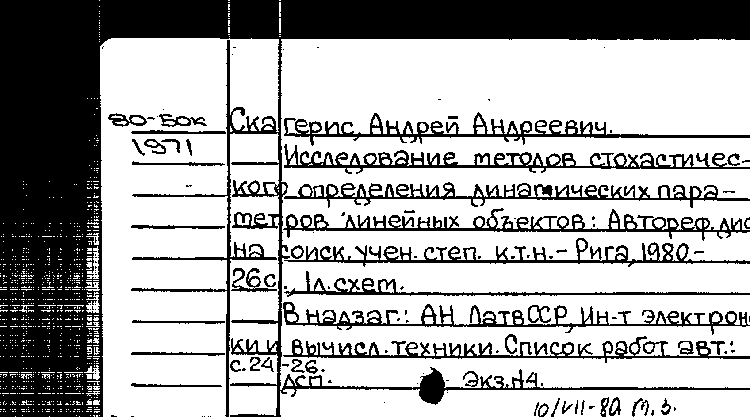 80-Бок Скагерис, Андрей Андреевич.
1971 Исследование методов стохастичес-
кого определения динамических пара-
метров линейных объектов: Автореф. дис
на соиск. учен. степ. к.т.н. - Рига, 1980.-
26с., 1л. схем.
В надзаг.: АН ЛатвССР, Ин-т электрон
ки и вычисл. техники. Список работ авт.:
с. 24-26.
ДСП. Экз. №4.
10/VII-80 т. з.